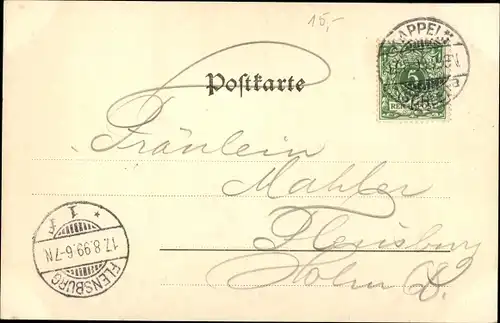 15,-
KAPPELN
5
Postkarte
Fräulein
Mahler
Flensburg
Holm
* 1 *
17.8.99.6-7N
FLENSBURG